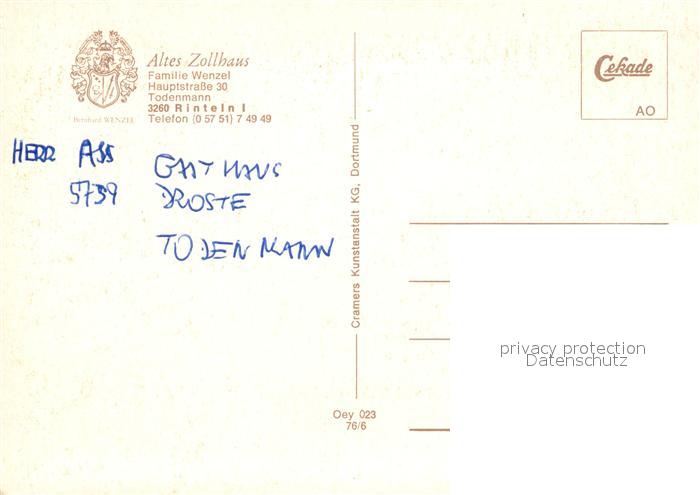 Altes Zollhaus
Familie Wenzel
Hauptstraße 30
Todenmann
3260 Rinteln I
Telefon (0 57 51) 7 49 49
Bernhard WENZEL
HERR ASS
5739
GASTHAUS
DROSTE
TODENMANN
Cramers Kunstanstalt KG, Dortmund
Oey 023
76/6
Cekade
AO
privacy protection
Datenschutz